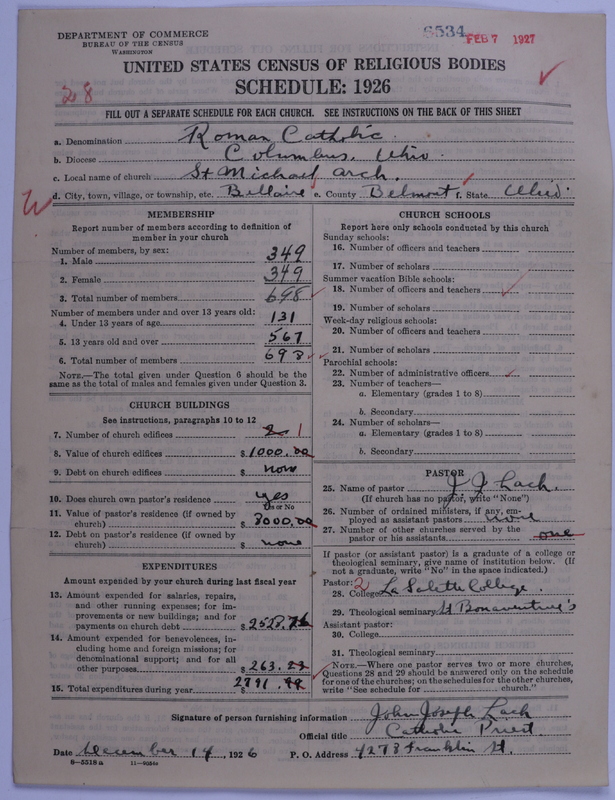 DEPARTMENT OF COMMERCE
BUREAU OF THE CENSUS
WASHINGTON
6534
FEB 7 1927
UNITED STATES CENSUS OF RELIGIOUS BODIES
SCHEDULE: 1926
28
FILL OUT A SEPARATE SCHEDULE FOR EACH CHURCH. SEE INSTRUCTIONS ON THE BACK OF THIS SHEET
a. Denomination Roman Catholic.
b. Diocese Columbus, Ohio
c. Local name of church St Michael Arch.
d. City, town, village, or township, etc. Bellaire e. County Belmont f. State Ohio.
MEMBERSHIP
Report number of members according to definition of
member in your church
Number of members, by sex:
1. Male 349
2. Female 349
3. Total number of members 698
Number of members under and over 13 years old:
4. Under 13 years of age 131
5. 13 years old and over 567
6. Total number of members 698
NOTE.—The total given under Question 6 should be
same as the total of males and females given under Question 3.
CHURCH BUILDINGS
See instructions, paragraphs 10 to 12
7. Number of church edifices 1
8. Value of church edifices $1000.00
9. Debt on church edifices $ none
10. Does church own pastor's residence yes
Yes or No
11. Value of pastor's residence (if owned by
church) $8000.00
12. Debt on pastor's residence (if owned by
church) $ none
EXPENDITURES
Amount expended by your church during last fiscal year
13. Amount expended for salaries, repairs,
and other running expenses; for im-
provements or new buildings; and for
payments on church debt $2528.76
14. Amount expended for benevolences, in-
cluding home and foreign missions; for
denominational support; and for all
other purposes $263.
15. Total expenditures during year $2791.
CHURCH SCHOOLS
Report here only schools conducted by this church
Sunday schools:
16. Number of officers and teachers
17. Number of scholars
Summer vacation Bible schools:
18. Number of officers and teachers
19. Number of scholars
Week-day religious schools:
20. Number of officers and teachers
21. Number of scholars
Parochial schools:
22. Number of administrative officers
23. Number of teachers—
a. Elementary (grades 1 to 8)
b. Secondary
24. Number of scholars—
a. Elementary (grades 1 to 8)
b. Secondary
PASTOR
25. Name of pastor J J Lach.
(If church has no pastor, write "None")
26. Number of ordained ministers, if any, em-
ployed as assistant pastors none
27. Number of other churches served by the
pastor or his assistants one
If pastor (or assistant pastor) is a graduate of a college or
theological seminary, give name of institution below. (If
not a graduate, write "No" in the space indicated.)
Pastor: 2
28. College La Salette College.
29. Theological seminary St Bonaventure's
Assistant pastor:
30. College
31. Theological seminary
NOTE.—Where one pastor serves two or more churches,
Questions 28 and 29 should be answered only on the schedule
for one of the churches; on the schedules for the other churches,
write "See schedule for church."
Signature of person furnishing information John Joseph Lach
Official title Catholic Priest
Date December 14, 1926 P. O. Address 4273 Franklin St.
8-5518 a 11-9056